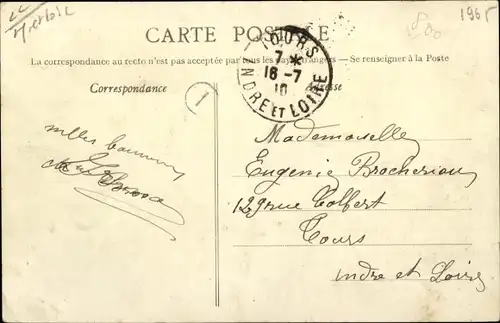 1965
1800
CARTE POSTALE.
TOURS
7 *
16-7
10
INDRE ET LOIRE
La correspondance au recto n'est pas acceptée par tous les pays étrangers — Se renseigner à la Poste
Correspondance
Adresse
1
Mademoiselle
Eugenie Brocheriou
129 rue Colbert
Tours
Indre et Loire
milles